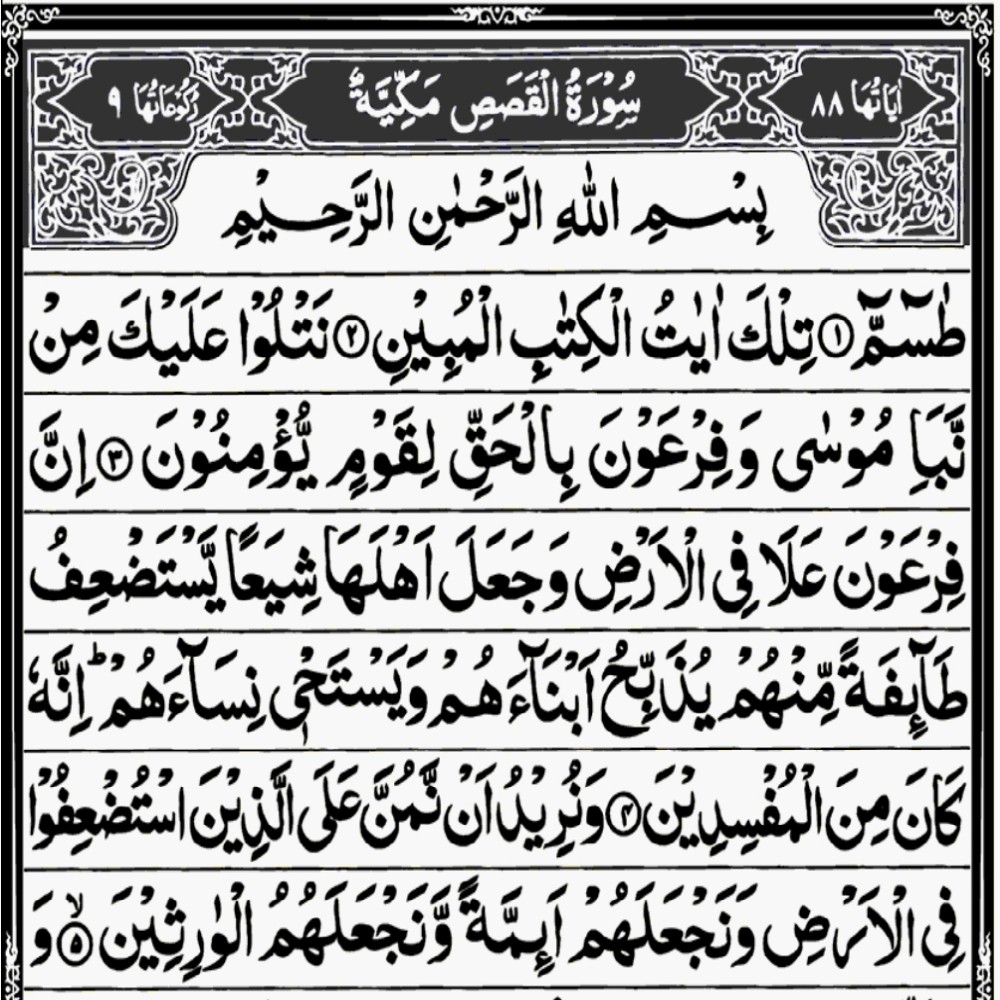 اٰيَاتُهَا ٨٨ سُوْرَةُ الْقَصَصِ مَكِّيَّةٌ رُكُوْعَاتُهَا ٩
بِسْمِ اللّٰهِ الرَّحْمٰنِ الرَّحِيْمِ
طٰسٓمّٓ ۝١ تِلْكَ اٰيٰتُ الْكِتٰبِ الْمُبِيْنِ ۝٢ نَتْلُوْا عَلَيْكَ مِنْ
نَّبَاِ مُوْسٰى وَفِرْعَوْنَ بِالْحَقِّ لِقَوْمٍ يُّؤْمِنُوْنَ ۝٣ اِنَّ
فِرْعَوْنَ عَلَا فِى الْاَرْضِ وَجَعَلَ اَهْلَهَا شِيَعًا يَّسْتَضْعِفُ
طَآئِفَةً مِّنْهُمْ يُذَبِّحُ اَبْنَآءَهُمْ وَيَسْتَحْيٖ نِسَآءَهُمْ ؕ اِنَّهٗ
كَانَ مِنَ الْمُفْسِدِيْنَ ۝٤ وَنُرِيْدُ اَنْ نَّمُنَّ عَلَى الَّذِيْنَ اسْتُضْعِفُوْا
فِى الْاَرْضِ وَنَجْعَلَهُمْ اَئِمَّةً وَّنَجْعَلَهُمُ الْوٰرِثِيْنَ ۙ۝٥ وَ